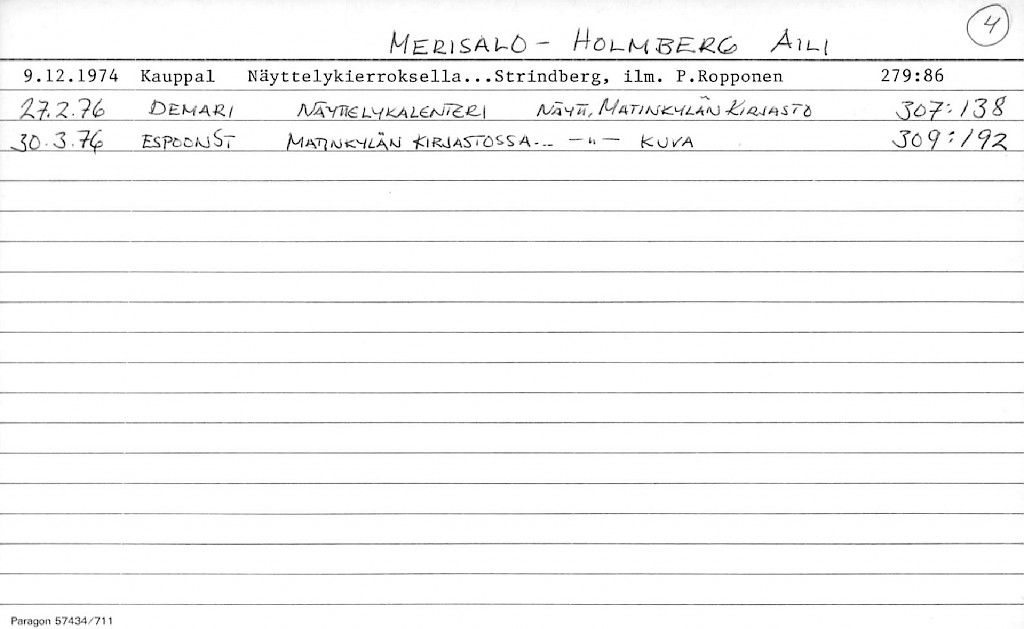 4
MERISALO - HOLMBERG AILI
9.12.1974 Kauppal Näyttelykierroksella...Strindberg, ilm. P.Ropponen 279:86
27.2.76 DEMARI NÄYTTELYKALENTERI NÄYTT, MATINKYLÄN KIRJASTO 307:138
30.3.76 ESPOONST MATINKYLÄN KIRJASTOSSA... —"— KUVA 309:192
Paragon 57434/711